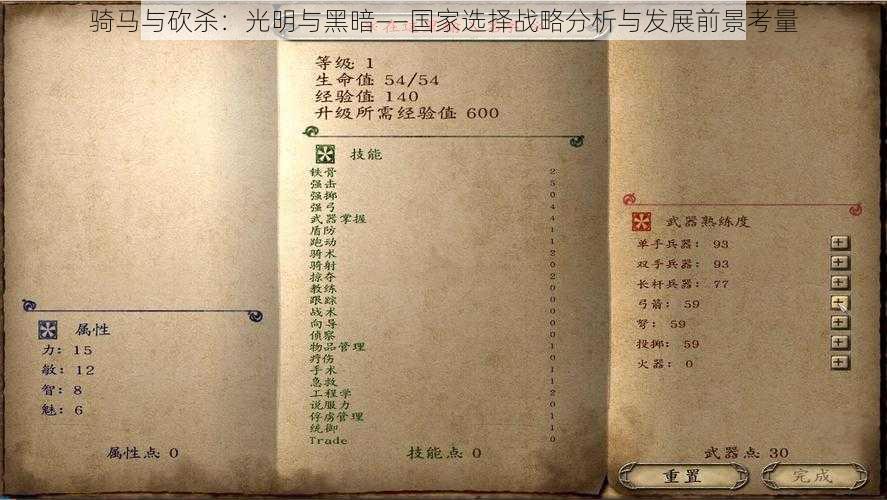 骑马与砍杀：光明与黑暗——国家选择战略分析与发展前景考量
等级: 1
生命值: 54/54
经验值: 140
升级所需经验值: 600
技能
铁骨 2
强击 5
强掷 0
强弓 4
武器掌握 4
盾防 1
跑动 1
骑术 2
骑射 0
掠夺 2
教练 0
跟踪 0
战术 0
向导 0
侦察 0
物品管理 1
疗伤 0
手术 1
急救 1
工程学 2
说服力 0
俘虏管理 1
统御 1
Trade 0
技能点: 0
属性
力: 15
敏: 12
智: 8
魅: 6
属性点: 0
武器熟练度
单手兵器: 93
双手兵器: 93
长杆兵器: 77
弓箭: 59
弩: 59
投掷: 59
火器: 0
武器点: 30
重置
完成